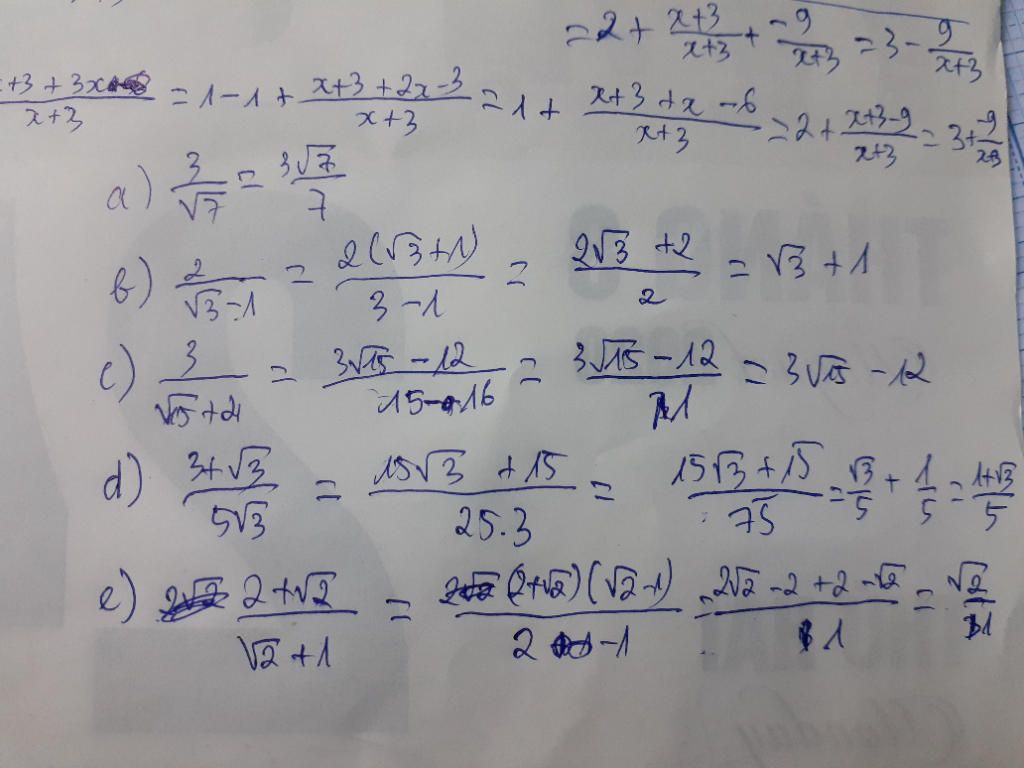 = 2 + \frac{x+3}{x+3} + \frac{-9}{x+3} = 3 - \frac{9}{x+3}
\frac{x+3+3x}{x+3} = 1 - 1 + \frac{x+3+2x-3}{x+3} = 1 + \frac{x+3+x-6}{x+3} = 2 + \frac{x+3-9}{x+3} = 3 + \frac{-9}{x+3}
a) \frac{3}{\sqrt{7}} = \frac{3\sqrt{7}}{7}
b) \frac{2}{\sqrt{3}-1} = \frac{2(\sqrt{3}+1)}{3-1} = \frac{2\sqrt{3}+2}{2} = \sqrt{3}+1
c) \frac{3}{\sqrt{15}+4} = \frac{3\sqrt{15}-12}{15-16} = \frac{3\sqrt{15}-12}{1} = 3\sqrt{15}-12
d) \frac{3+\sqrt{3}}{5\sqrt{3}} = \frac{15\sqrt{3}+15}{25.3} = \frac{15\sqrt{3}+15}{75} = \frac{\sqrt{3}}{5} + \frac{1}{5} = \frac{1+\sqrt{3}}{5}
e) \frac{2+\sqrt{2}}{\sqrt{2}+1} = \frac{(2+\sqrt{2})(\sqrt{2}-1)}{2-1} = \frac{2\sqrt{2}-2+2-\sqrt{2}}{1} = \frac{\sqrt{2}}{1}